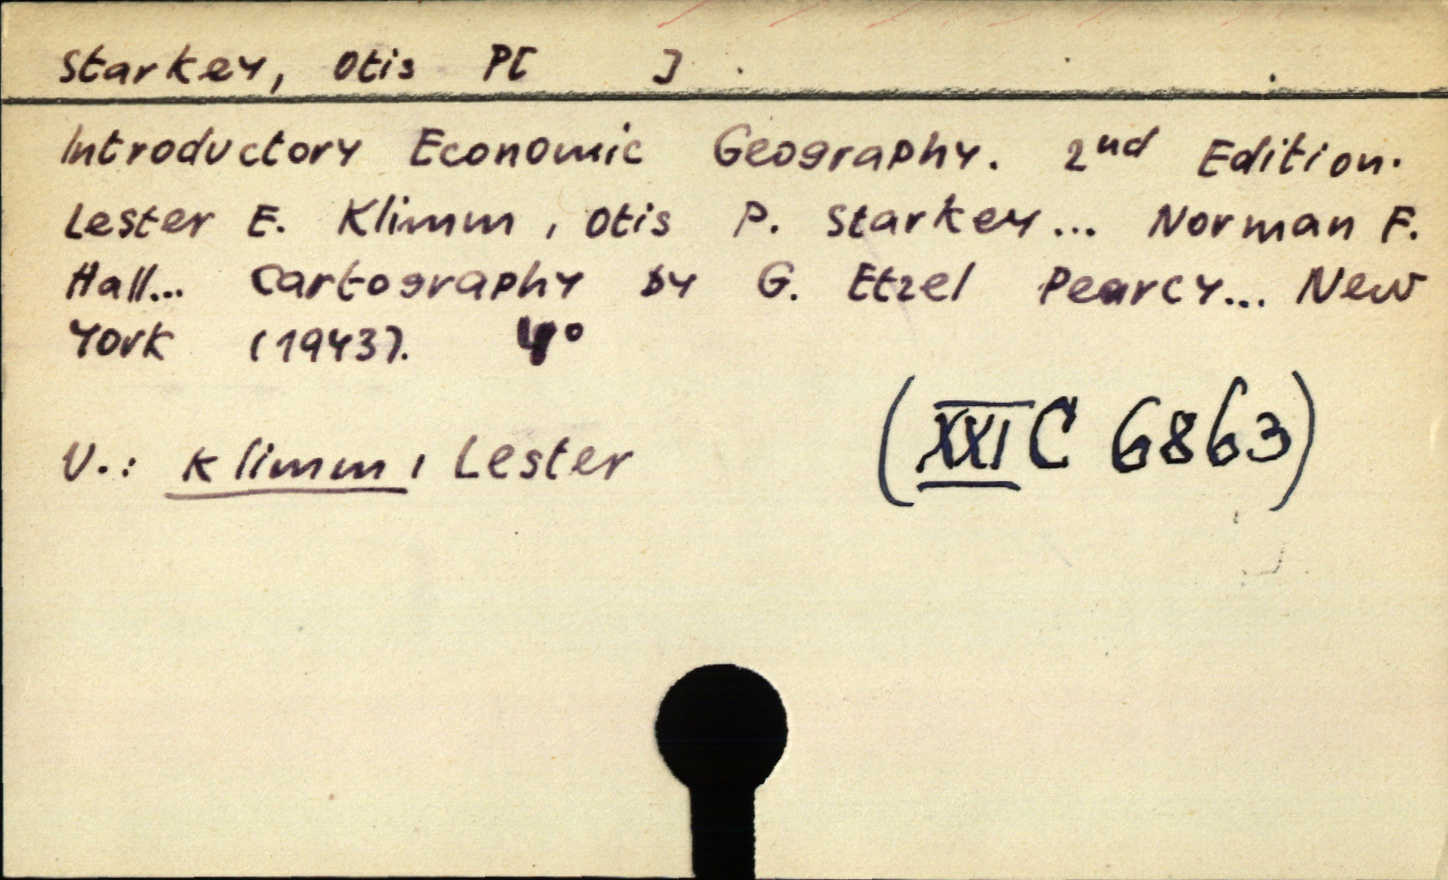 Starkey, Otis P[ ] .
Introductory Economic Geography. 2nd Edition.
Lester E. Klimm, Otis P. Starkey... Norman F.
Hall... Cartography by G. Etzel Pearcy... New
York (1943). 4°
(XXI C 6863)
V.: Klimm, Lester